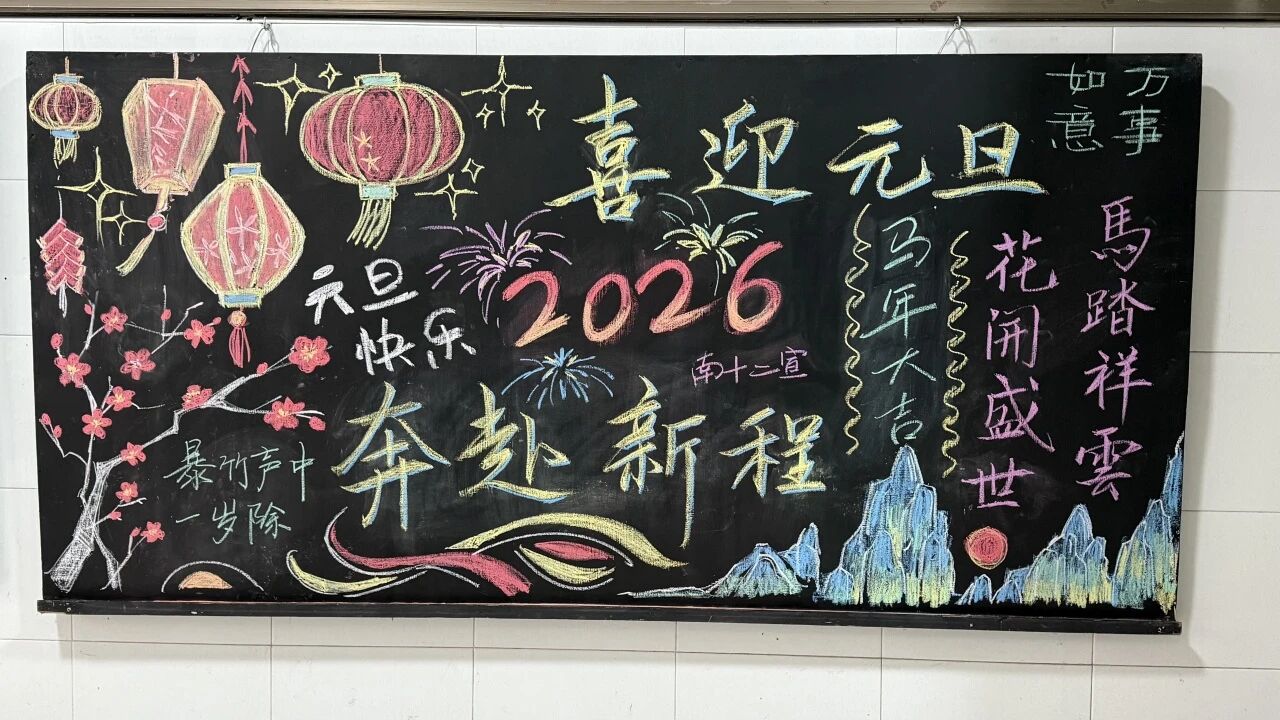 喜迎元旦
万事
如意
元旦
快乐
2026
南十二宣
奔赴新程
暴竹声中
一岁除
马年大吉
馬踏祥雲
花開盛世